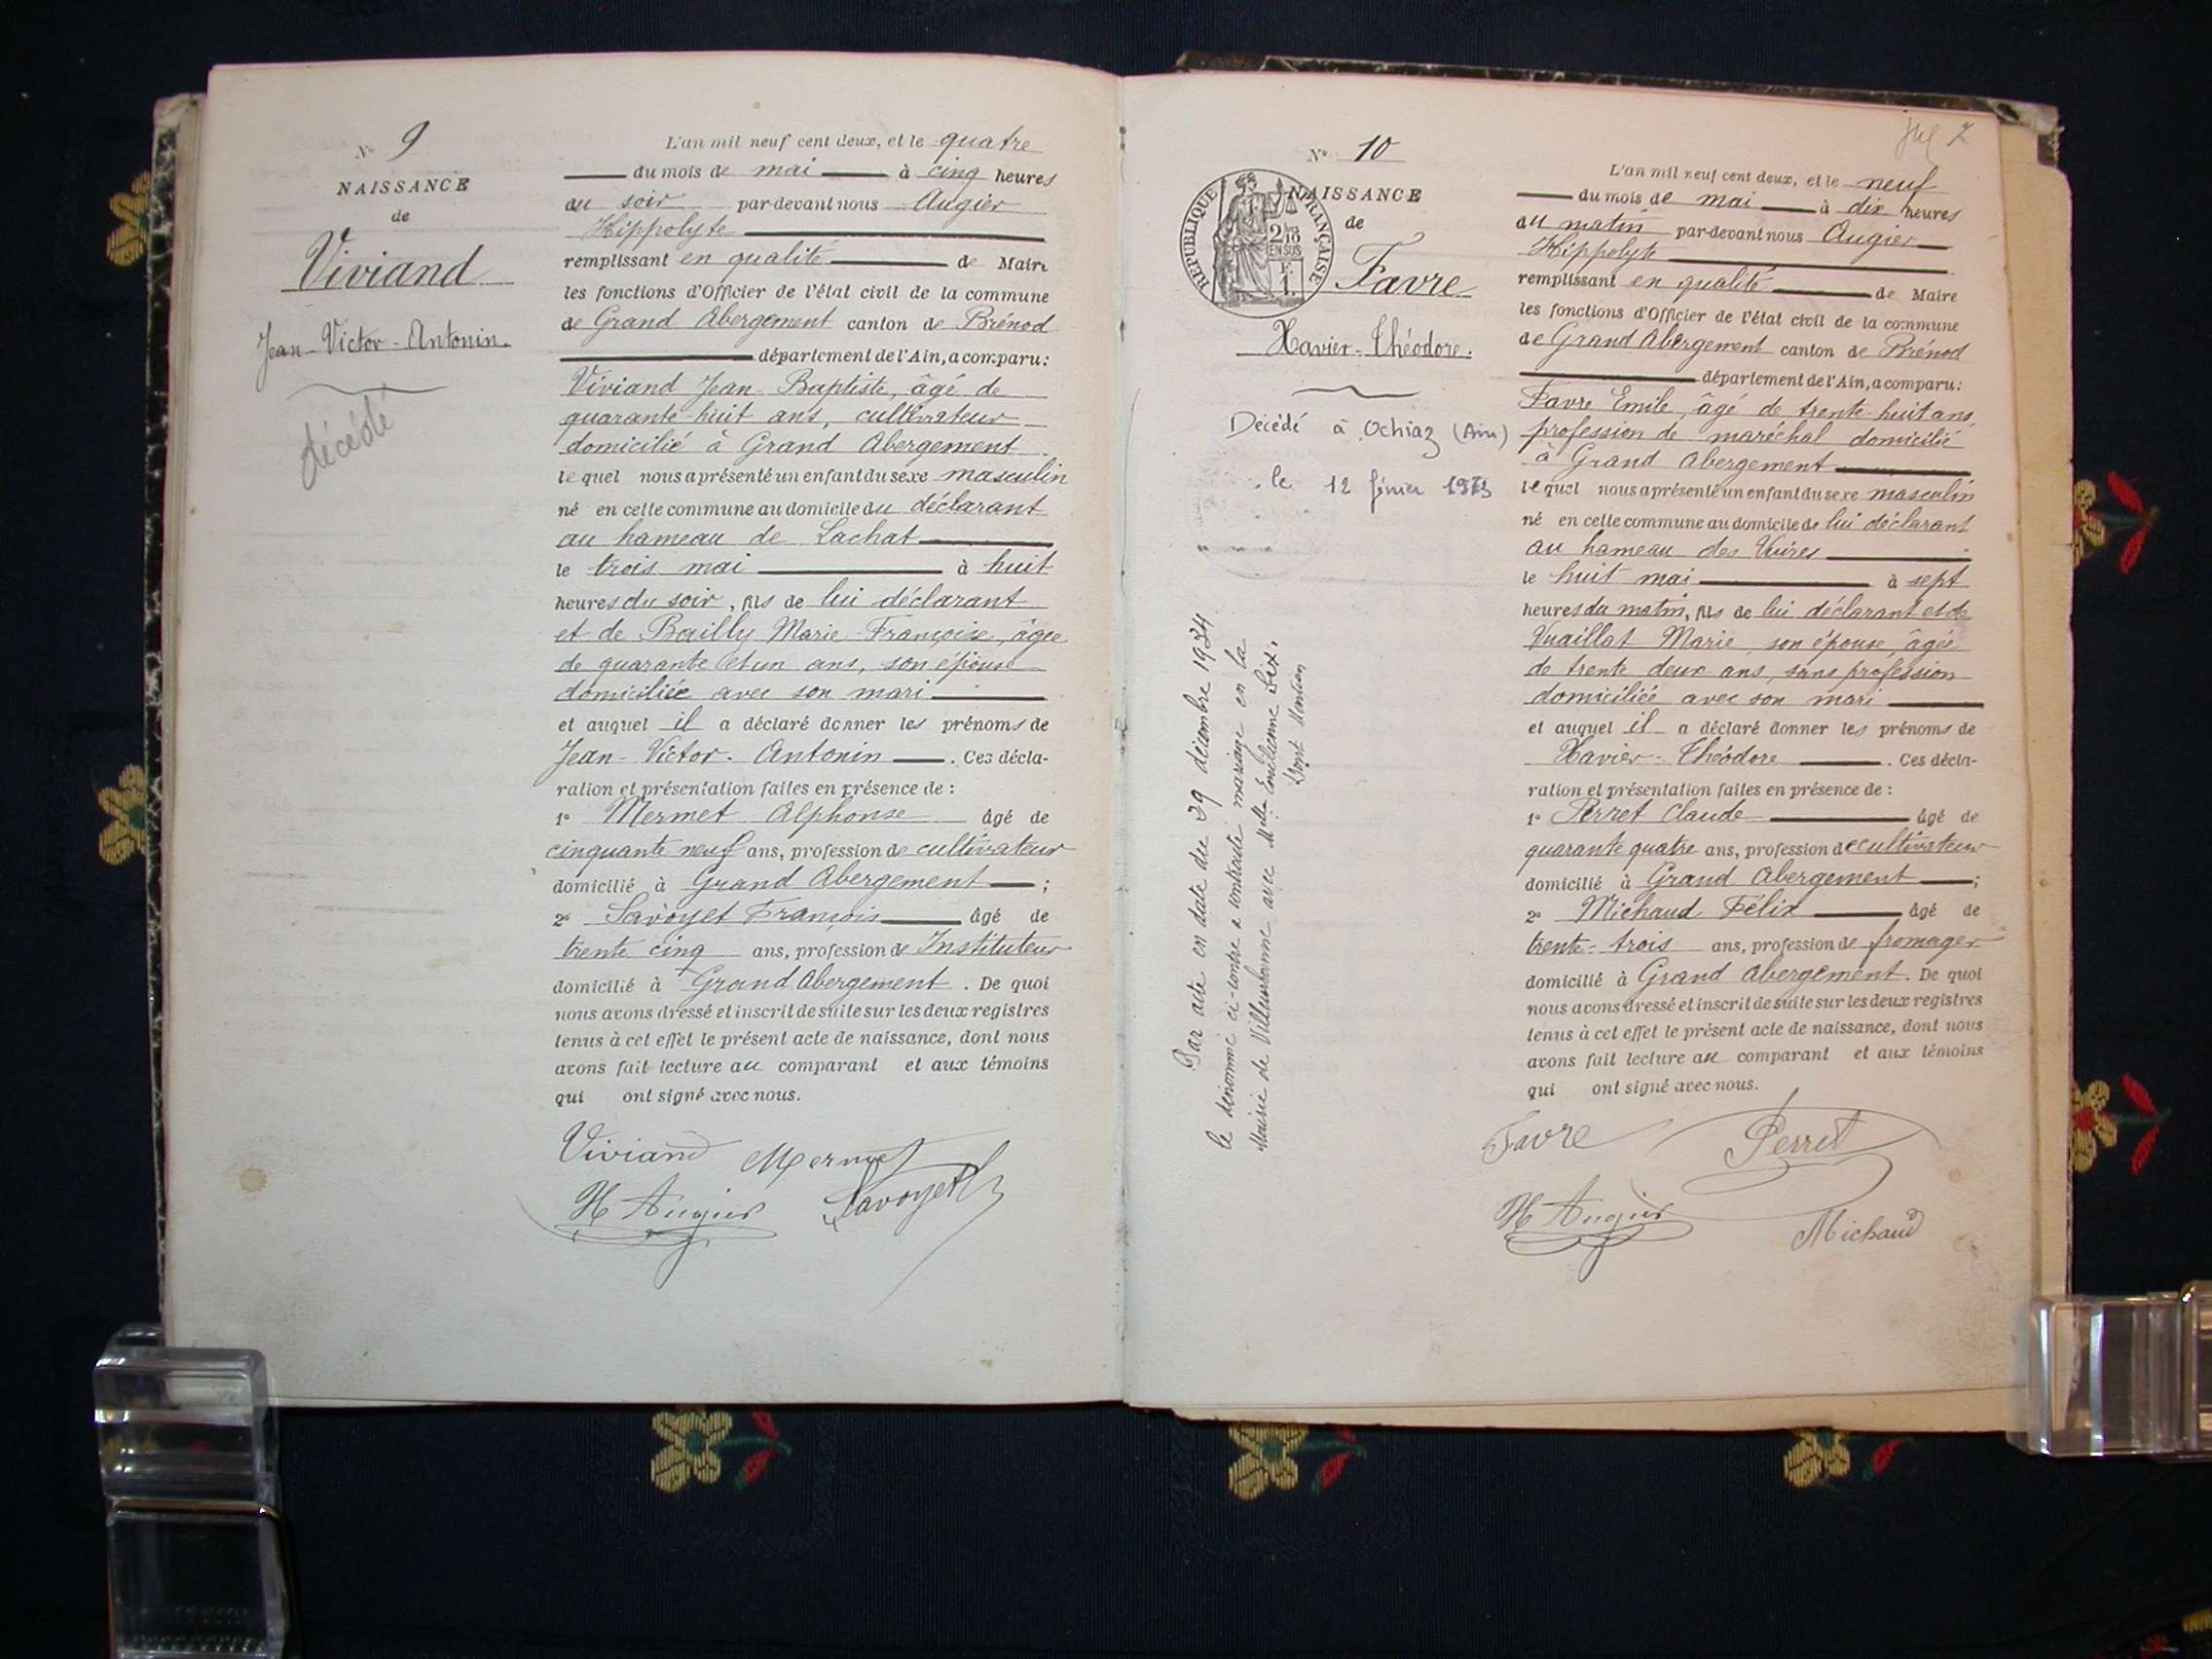 N° 9
NAISSANCE
de
Viviand
Jean-Victor-Antonin.
décédé
L'an mil neuf cent deux, et le quatre
du mois de mai à cinq heures
du soir par-devant nous Augier
Hippolyte
remplissant en qualité de Maire
les fonctions d'Officier de l'état civil de la commune
de Grand Abergement canton de Brénod
département de l'Ain, a comparu:
Viviand Jean-Baptiste, âgé de
quarante-huit ans, cultivateur
domicilié à Grand Abergement
lequel nous a présenté un enfant du sexe masculin
né en cette commune au domicile du déclarant
au hameau de Lachat
le trois mai à huit
heures du soir, fils de lui déclarant
et de Bailly Marie-Françoise, âgée
de quarante et un ans, son épouse
domiciliée avec son mari
et auquel il a déclaré donner les prénoms de
Jean-Victor-Antonin. Ces décla-
ration et présentation faites en présence de :
1° Mermet Alphonse âgé de
cinquante neuf ans, profession de cultivateur
domicilié à Grand Abergement ;
2° Savoyet François âgé de
trente cinq ans, profession de Instituteur
domicilié à Grand Abergement. De quoi
nous avons dressé et inscrit de suite sur les deux registres
tenus à cet effet le présent acte de naissance, dont nous
avons fait lecture au comparant et aux témoins
qui ont signé avec nous.
Viviand Mermet
H Augier Savoyet
jul 7
N° 10
RÉPUBLIQUE FRANÇAISE
2/10 EN SUS
NAISSANCE
de
Favre
Xavier-Théodore.
Décédé à Ochiaz (Ain)
le 12 février 1973
Par acte en date du 29 décembre 1934
le dénommé ci-contre a contracté mariage en la
Mairie de Villeurbanne avec Melle Emilienne Bix.
Dont Mention
L'an mil neuf cent deux, et le neuf
du mois de mai à dix heures
du matin par-devant nous Augier
Hippolyte
remplissant en qualité de Maire
les fonctions d'Officier de l'état civil de la commune
de Grand Abergement canton de Brénod
département de l'Ain, a comparu:
Favre Emile, âgé de trente-huit ans,
profession de maréchal domicilié
à Grand Abergement
lequel nous a présenté un enfant du sexe masculin
né en cette commune au domicile de lui déclarant
au hameau des Vuires
le huit mai à sept
heures du matin, fils de lui déclarant et de
Vuaillat Marie, son épouse, âgée
de trente deux ans, sans profession
domiciliée avec son mari
et auquel il a déclaré donner les prénoms de
Xavier-Théodore. Ces décla-
ration et présentation faites en présence de :
1° Perret Claude âgé de
quarante quatre ans, profession de cultivateur
domicilié à Grand Abergement ;
2° Michaud Félix âgé de
trente-trois ans, profession de fromager
domicilié à Grand Abergement. De quoi
nous avons dressé et inscrit de suite sur les deux registres
tenus à cet effet le présent acte de naissance, dont nous
avons fait lecture au comparant et aux témoins
qui ont signé avec nous.
Favre Perret
H Augier Michaud